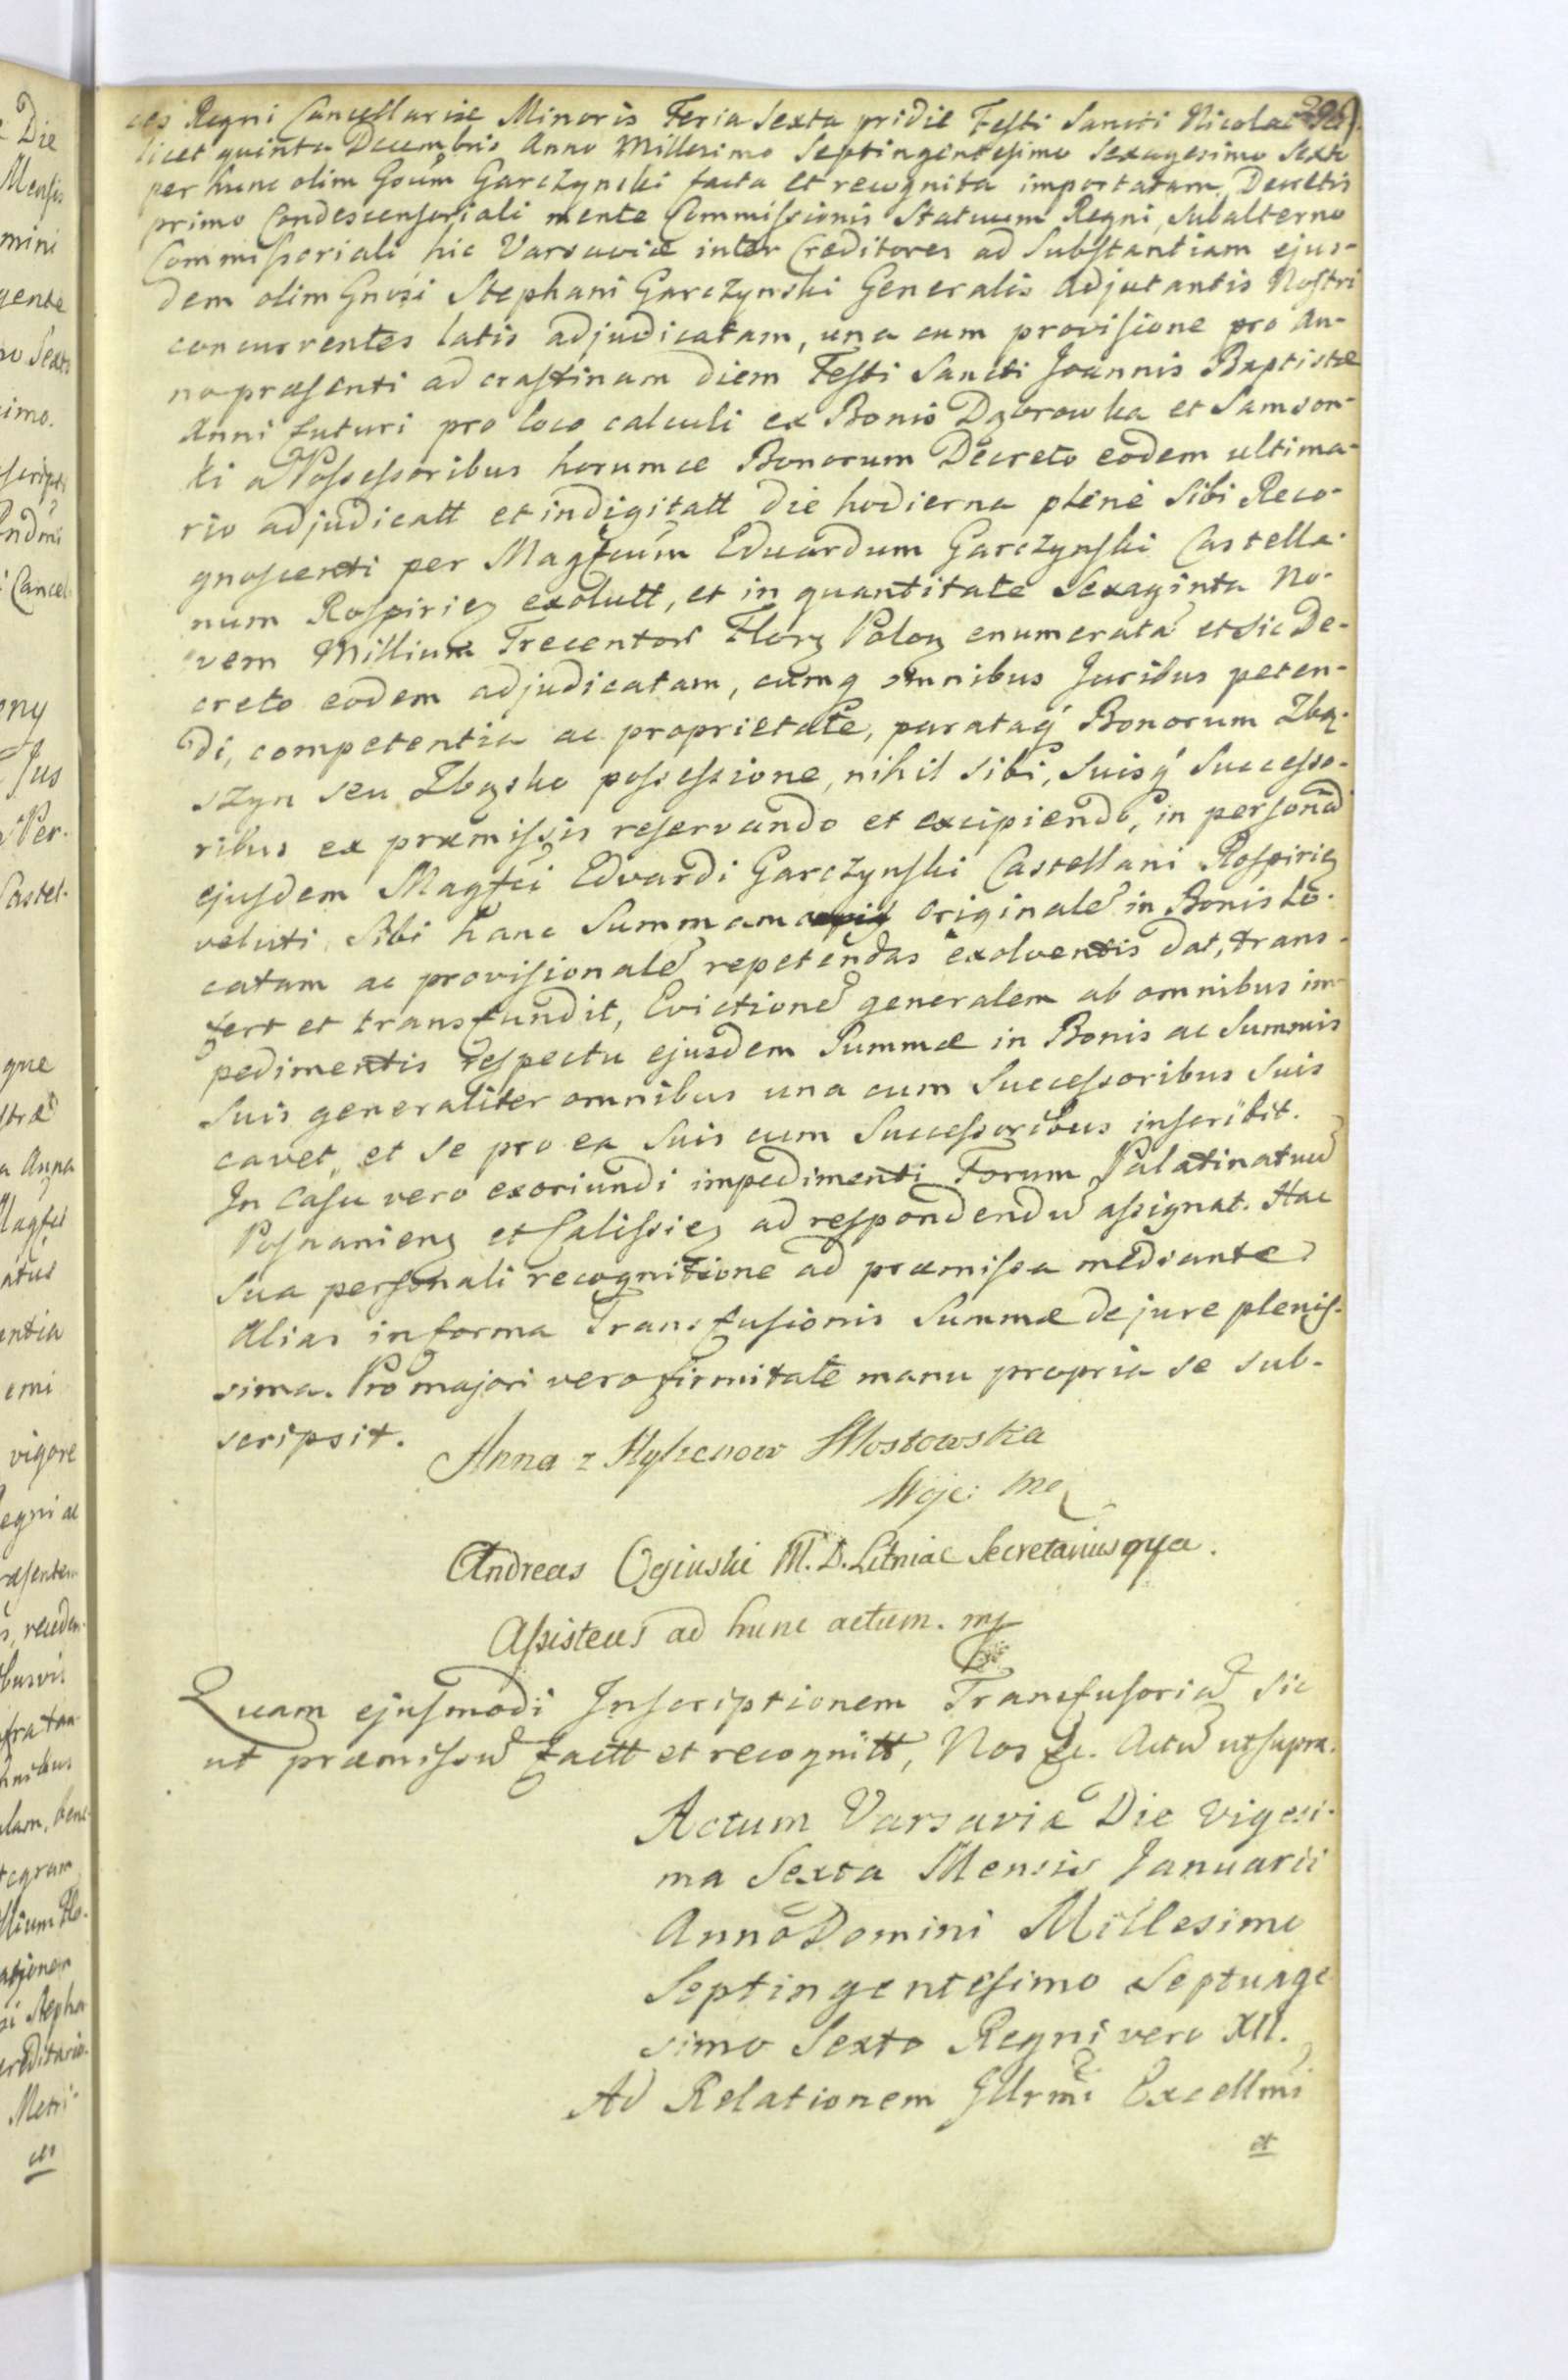 ces Regni Cancellariæ Minoris Feria Sexta pridie Festi Sancti Nicolai
licet quinta Decembris Anno Millesimo Septingentesimo Sexagesimo Sexto
per hunc olim Gsum Garczynski facta et recognita importatam, Decretis
primo Condescensoriali mente Commissionis Statuum Regni, subalterno
Commissoriali hic Varsaviæ inter Creditores ad Substantiam ejus-
dem olim Gnosi Stephani Garczynski Generalis Adjutantis Nostri
concurrentes latis adjudicatam, una cum provisione pro An-
no præsenti ad crastinam diem Festi Sancti Joannis Baptistæ
Anni futuri pro loco calculi ex Bonis Dąbrowka et Samson-
ki a Possessoribus horumce Bonorum Decreto eodem ultima-
rio adjudicatt et indigitatt die hodierna plene Sibi Reco-
gnoscenti per Magfcum Eduardum Garczynski Castella-
num Rospirien exolutt, et in quantitate Sexaginta No-
vem Millium Trecentor Flor Polon enumerata et sic De-
creto eodem adjudicatam, cumq omnibus Juribus peten-
di, competentia ac proprietate, parataq Bonorum Zbą-
szyn seu Zbąsko possessione, nihil sibi, suisq Successo-
ribus ex præmissis reservando et excipiendo, in persona
ejusdem Magfci Edvardi Garczynski Castellani Rospirien
veluti Sibi hanc Summam originale in Bonis lo-
catam ac provisionale repetendas exolventis dat, trans-
fert et transfundit, Evictione generalem ab omnibus im-
pedimentis respectu ejusdem Summæ in Bonis ac Summis
Suis generaliter omnibus una cum Successoribus Suis
cavet, et se pro ea Suis cum Successoribus inscribit.
In Casu vero exoriundi impedimenti Forum Palatinatuu
Posnanien et Calissien ad respondendu assignat. Hac
Sua personali recognitione ad præmissa mediante
Alias in forma Transfusionis Summæ de jure plenis-
sima. Pro majori vero firmitate manu propria se sub-
scripsit.
Anna z Hylzenow Mostowska
Woje: Ma
Andreas Oginski M. D. Litniae Secretarius qua
Assistens ad hunc actum. mp
Quam ejusmodi Inscriptionem Transfusoria sic
ut præmissu factt et recognitt, Nos &c. Actu ut supra.
Actum Varsaviæ Die Vigesi-
ma Sexta Mensis Januarii
Anno Domini Millesimo
Septingentesimo Septuage
simo Sexto Regni vero XII.
Ad Relationem Illrmi Excellmi
et